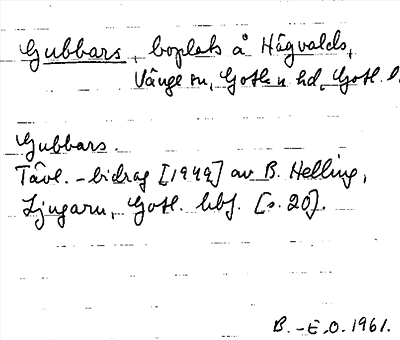 Gubbars, boplats å Hägvalds,
Vänge sn, Gotl. n hd, Gotl. l.
Gubbars.
Tävl.-bidrag [1949] av B. Helling,
Ljugarn, Gotl. hbf. [s. 20].
B.-E.O. 1961.